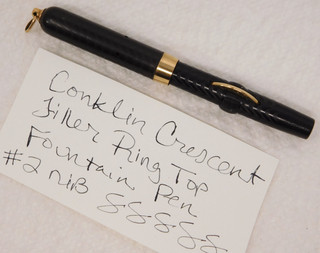 Conklin Crescent
Filler Ring Top
Fountain Pen
#2 nib